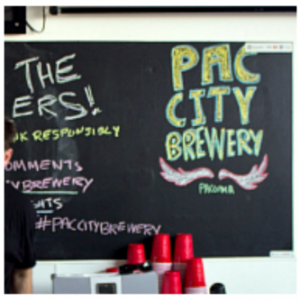 THE
ERS!
NK RESPONSIBLY
OMMENTS
BREWERY
#PACCITYBREWERY
PAC
CITY
BREWERY